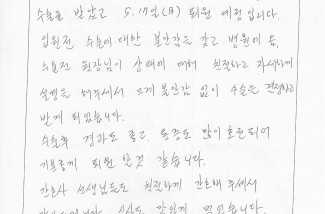 수술을 받았고 5.17일(月) 퇴원 예정입니다.
입원전 수술에 대한 불안감을 갖고 병원에 옴,
수술전 원장님이 상태에 대해 친절하고 자세하게
설명을 해주셔서 크게 불안감 없이 수술을 결정하고
받게 되었습니다.
수술후 경과도 좋고 통증도 많이 호전되어
기분좋게 퇴원 할것 같습니다.
간호사 선생님들도 친절하게 간호해 주셔서
식사도 맛있게 먹었습니다.